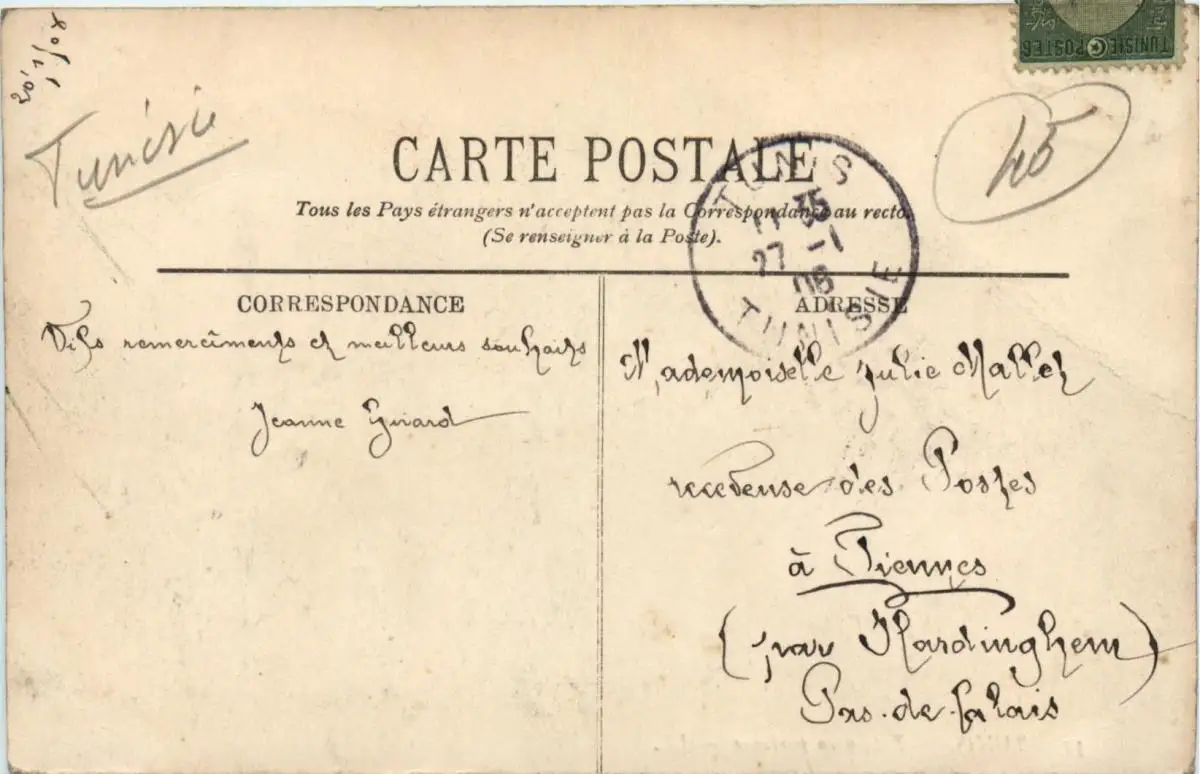 TUNISIE POSTES
Tunisie
45
CARTE POSTALE
Tous les Pays étrangers n'acceptent pas la Correspondance au recto.
(Se renseigner à la Poste).
TUNIS
35
27 -1
08
TUNISIE
CORRESPONDANCE
Vifs remercîments et meilleurs souhaits
Jeanne Girard
ADRESSE
Mademoiselle Julie Mallet
receveuse des Postes
à Fiennes
(par Hardinghem)
Pas-de-Calais